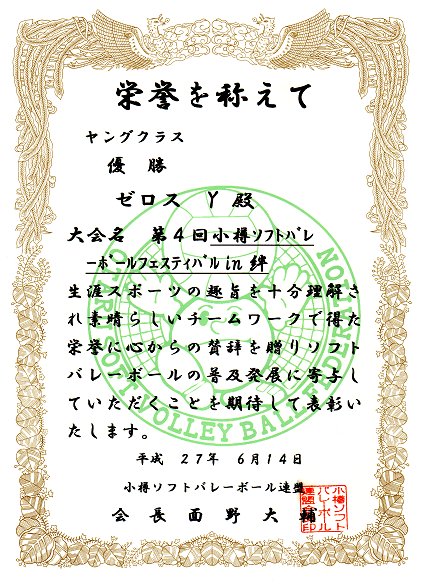 栄誉を称えて
ヤングクラス
優 勝
ゼロス Y 殿
大会名 第4回小樽ソフトバレ
ーボールフェスティバル in 絆
生涯スポーツの趣旨を十分理解さ
れ素晴らしいチームワークで得た
栄誉に心からの賛辞を贈りソフト
バレーボールの普及発展に寄与し
ていただくことを期待して表彰い
たします。
平成 27年 6月14日
小樽ソフトバレーボール連盟
会 長 面 野 大 輔
小樽ソフト
バレーボール
VOLLEY BALL